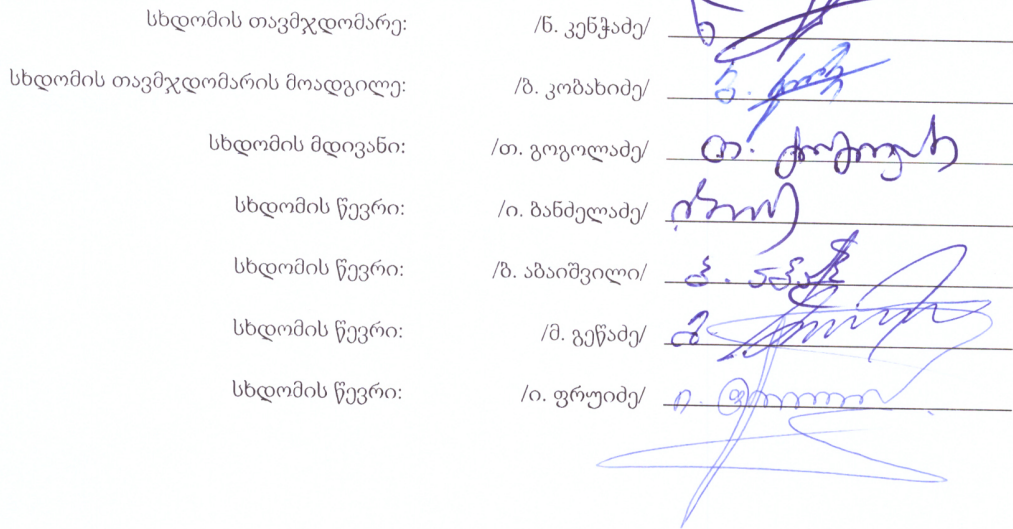 სხდომის თავმჯდომარე: /ნ. კენჭაძე/
სხდომის თავმჯდომარის მოადგილე: /ბ. კობახიძე/
სხდომის მდივანი: /თ. გოგოლაძე/
სხდომის წევრი: /ი. ბანძელაძე/
სხდომის წევრი: /ბ. აბაიშვილი/
სხდომის წევრი: /მ. გეწაძე/
სხდომის წევრი: /ი. ფრუიძე/